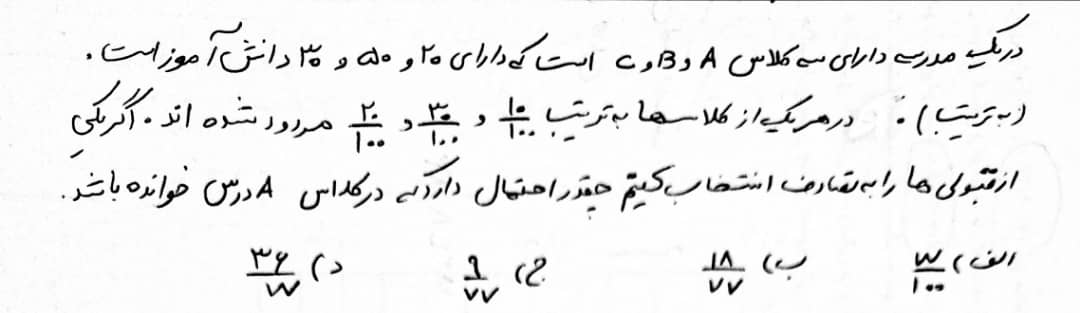 در یک مدرسه دارای سه کلاس A و B و C است که دارای ۲۰ و ۵۰ و ۳۰ دانش آموز است.
(به ترتیب). در هر یک از کلاسها به ترتیب ۱۰/۱۰۰ و ۳۰/۱۰۰ و ۲۰/۱۰۰ مردود شده اند. اگر یکی
از قبولی ها را به تصادف انتخاب کنیم چقدر احتمال دارد که در کلاس A درس خوانده باشد.
الف) ۷۷/۱۰۰ ب) ۱۸/۷۷ ج) ۹/۷۷ د) ۳۶/۷۷